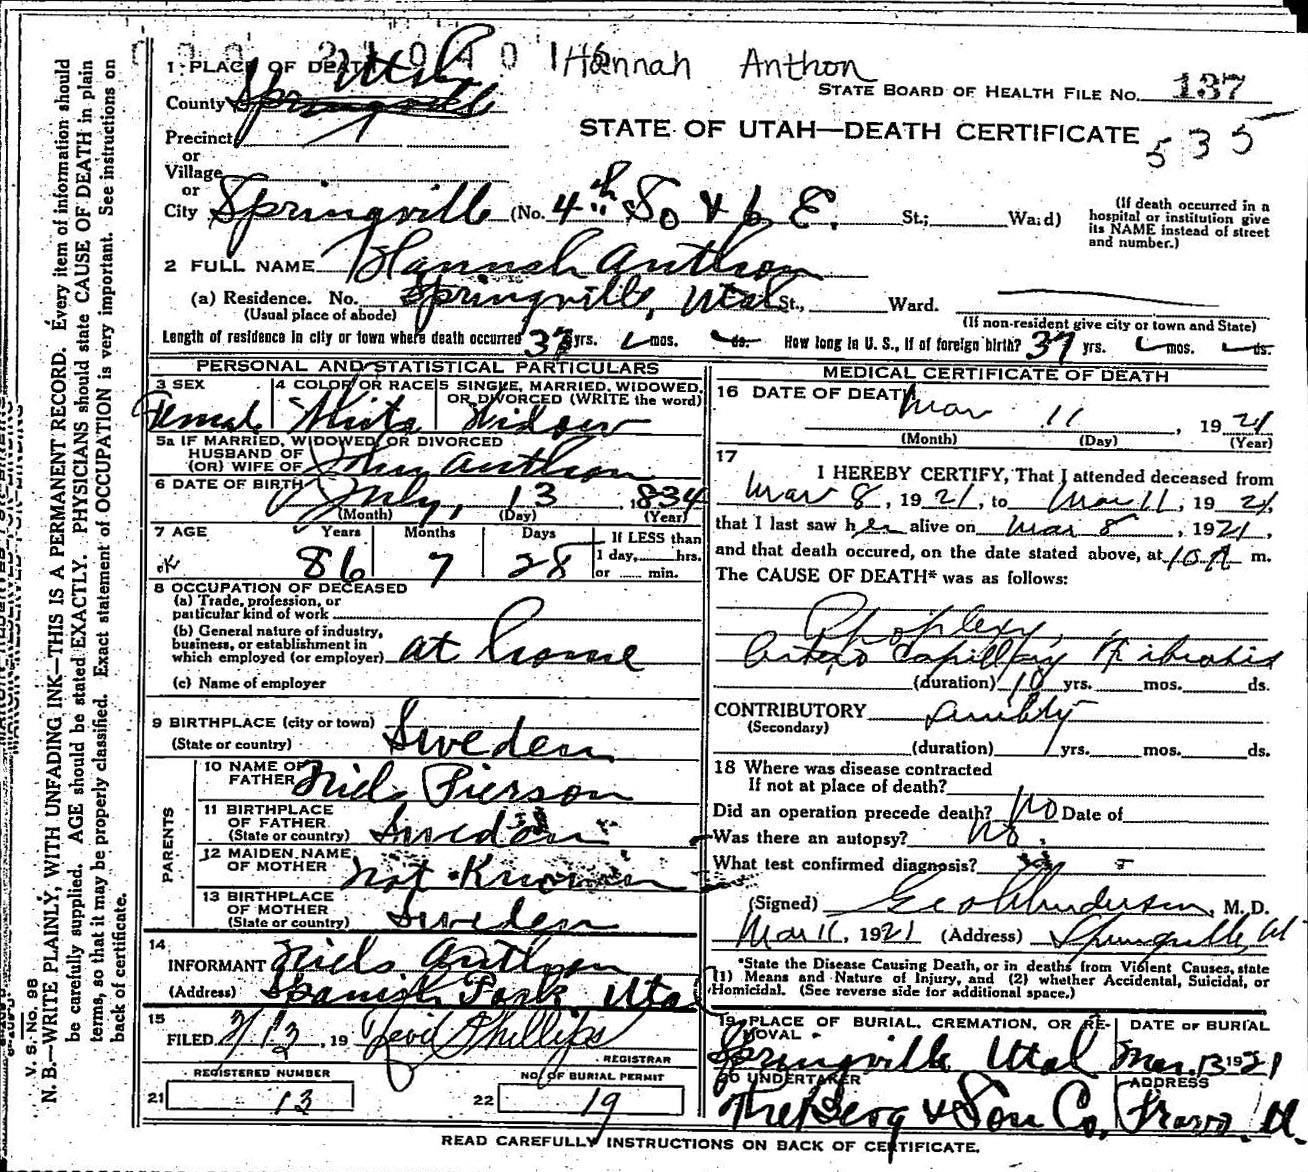 Hannah Anthon
1 PLACE OF DEATH
STATE BOARD OF HEALTH FILE NO. 137
County Springville Utah
STATE OF UTAH—DEATH CERTIFICATE
535
Precinct
or
Village
or
City Springville (No. 4th So & 6 E. St.; Ward)
(If death occurred in a
hospital or institution give
its NAME instead of street
and number.)
2 FULL NAME Hannah Anthon
(a) Residence. No. Springville, Utah St., Ward.
(Usual place of abode)
(If non-resident give city or town and State)
Length of residence in city or town where death occurred 37 yrs. mos. ds. How long in U. S., if of foreign birth? 37 yrs. mos. ds.
PERSONAL AND STATISTICAL PARTICULARS
3 SEX
Femal
4 COLOR OR RACE
White
5 SINGLE, MARRIED, WIDOWED,
OR DIVORCED (WRITE the word)
Widow
5a IF MARRIED, WIDOWED, OR DIVORCED
HUSBAND OF
(OR) WIFE OF John Anthon
6 DATE OF BIRTH July, 13, 1834
(Month) (Day) (Year)
7 AGE Years Months Days
86 7 28
If LESS than
1 day, hrs.
or min.
8 OCCUPATION OF DECEASED
(a) Trade, profession, or
particular kind of work
(b) General nature of industry,
business, or establishment in
which employed (or employer) at home
(c) Name of employer
9 BIRTHPLACE (city or town)
(State or country) Sweden
PARENTS
10 NAME OF
FATHER Niels Pierson
11 BIRTHPLACE
OF FATHER
(State or country) Sweden
12 MAIDEN NAME
OF MOTHER Not Known
13 BIRTHPLACE
OF MOTHER
(State or country) Sweden
14
INFORMANT Niels Anthon
(Address) Spanish Fork Utah
15
FILED 3/12, 19 Phillips
REGISTRAR
REGISTERED NUMBER
21 13
NO. OF BURIAL PERMIT
22 19
MEDICAL CERTIFICATE OF DEATH
16 DATE OF DEATH
Mar 11, 1921
(Month) (Day) (Year)
17
I HEREBY CERTIFY, That I attended deceased from
Mar 8, 1921, to Mar 11, 1921,
that I last saw her alive on Mar 8, 1921,
and that death occured, on the date stated above, at 10 A m.
The CAUSE OF DEATH* was as follows:
Apoplexy,
Arterio Capillary Fibrosis
(duration) 10 yrs. mos. ds.
CONTRIBUTORY Senility
(Secondary)
(duration) yrs. mos. ds.
18 Where was disease contracted
If not at place of death?
Did an operation precede death? No Date of
Was there an autopsy? No.
What test confirmed diagnosis?
(Signed) Geo Anderson, M. D.
Mar 11, 1921 (Address) Springville Ut
*State the Disease Causing Death, or in deaths from Violent Causes, state
(1) Means and Nature of Injury, and (2) whether Accidental, Suicidal, or
Homicidal. (See reverse side for additional space.)
19 PLACE OF BURIAL, CREMATION, OR RE-
MOVAL
Springville Utah
DATE OF BURIAL
Mar. 13 1921
20 UNDERTAKER
The Berg & Son Co,
ADDRESS
Provo. Ut.
READ CAREFULLY INSTRUCTIONS ON BACK OF CERTIFICATE.
V. S. No. 98
N. B.—WRITE PLAINLY, WITH UNFADING INK—THIS IS A PERMANENT RECORD. Every item of information should
be carefully supplied. AGE should be stated EXACTLY. PHYSICIANS should state CAUSE OF DEATH in plain
terms, so that it may be properly classified. Exact statement of OCCUPATION is very important. See instructions on
back of certificate.